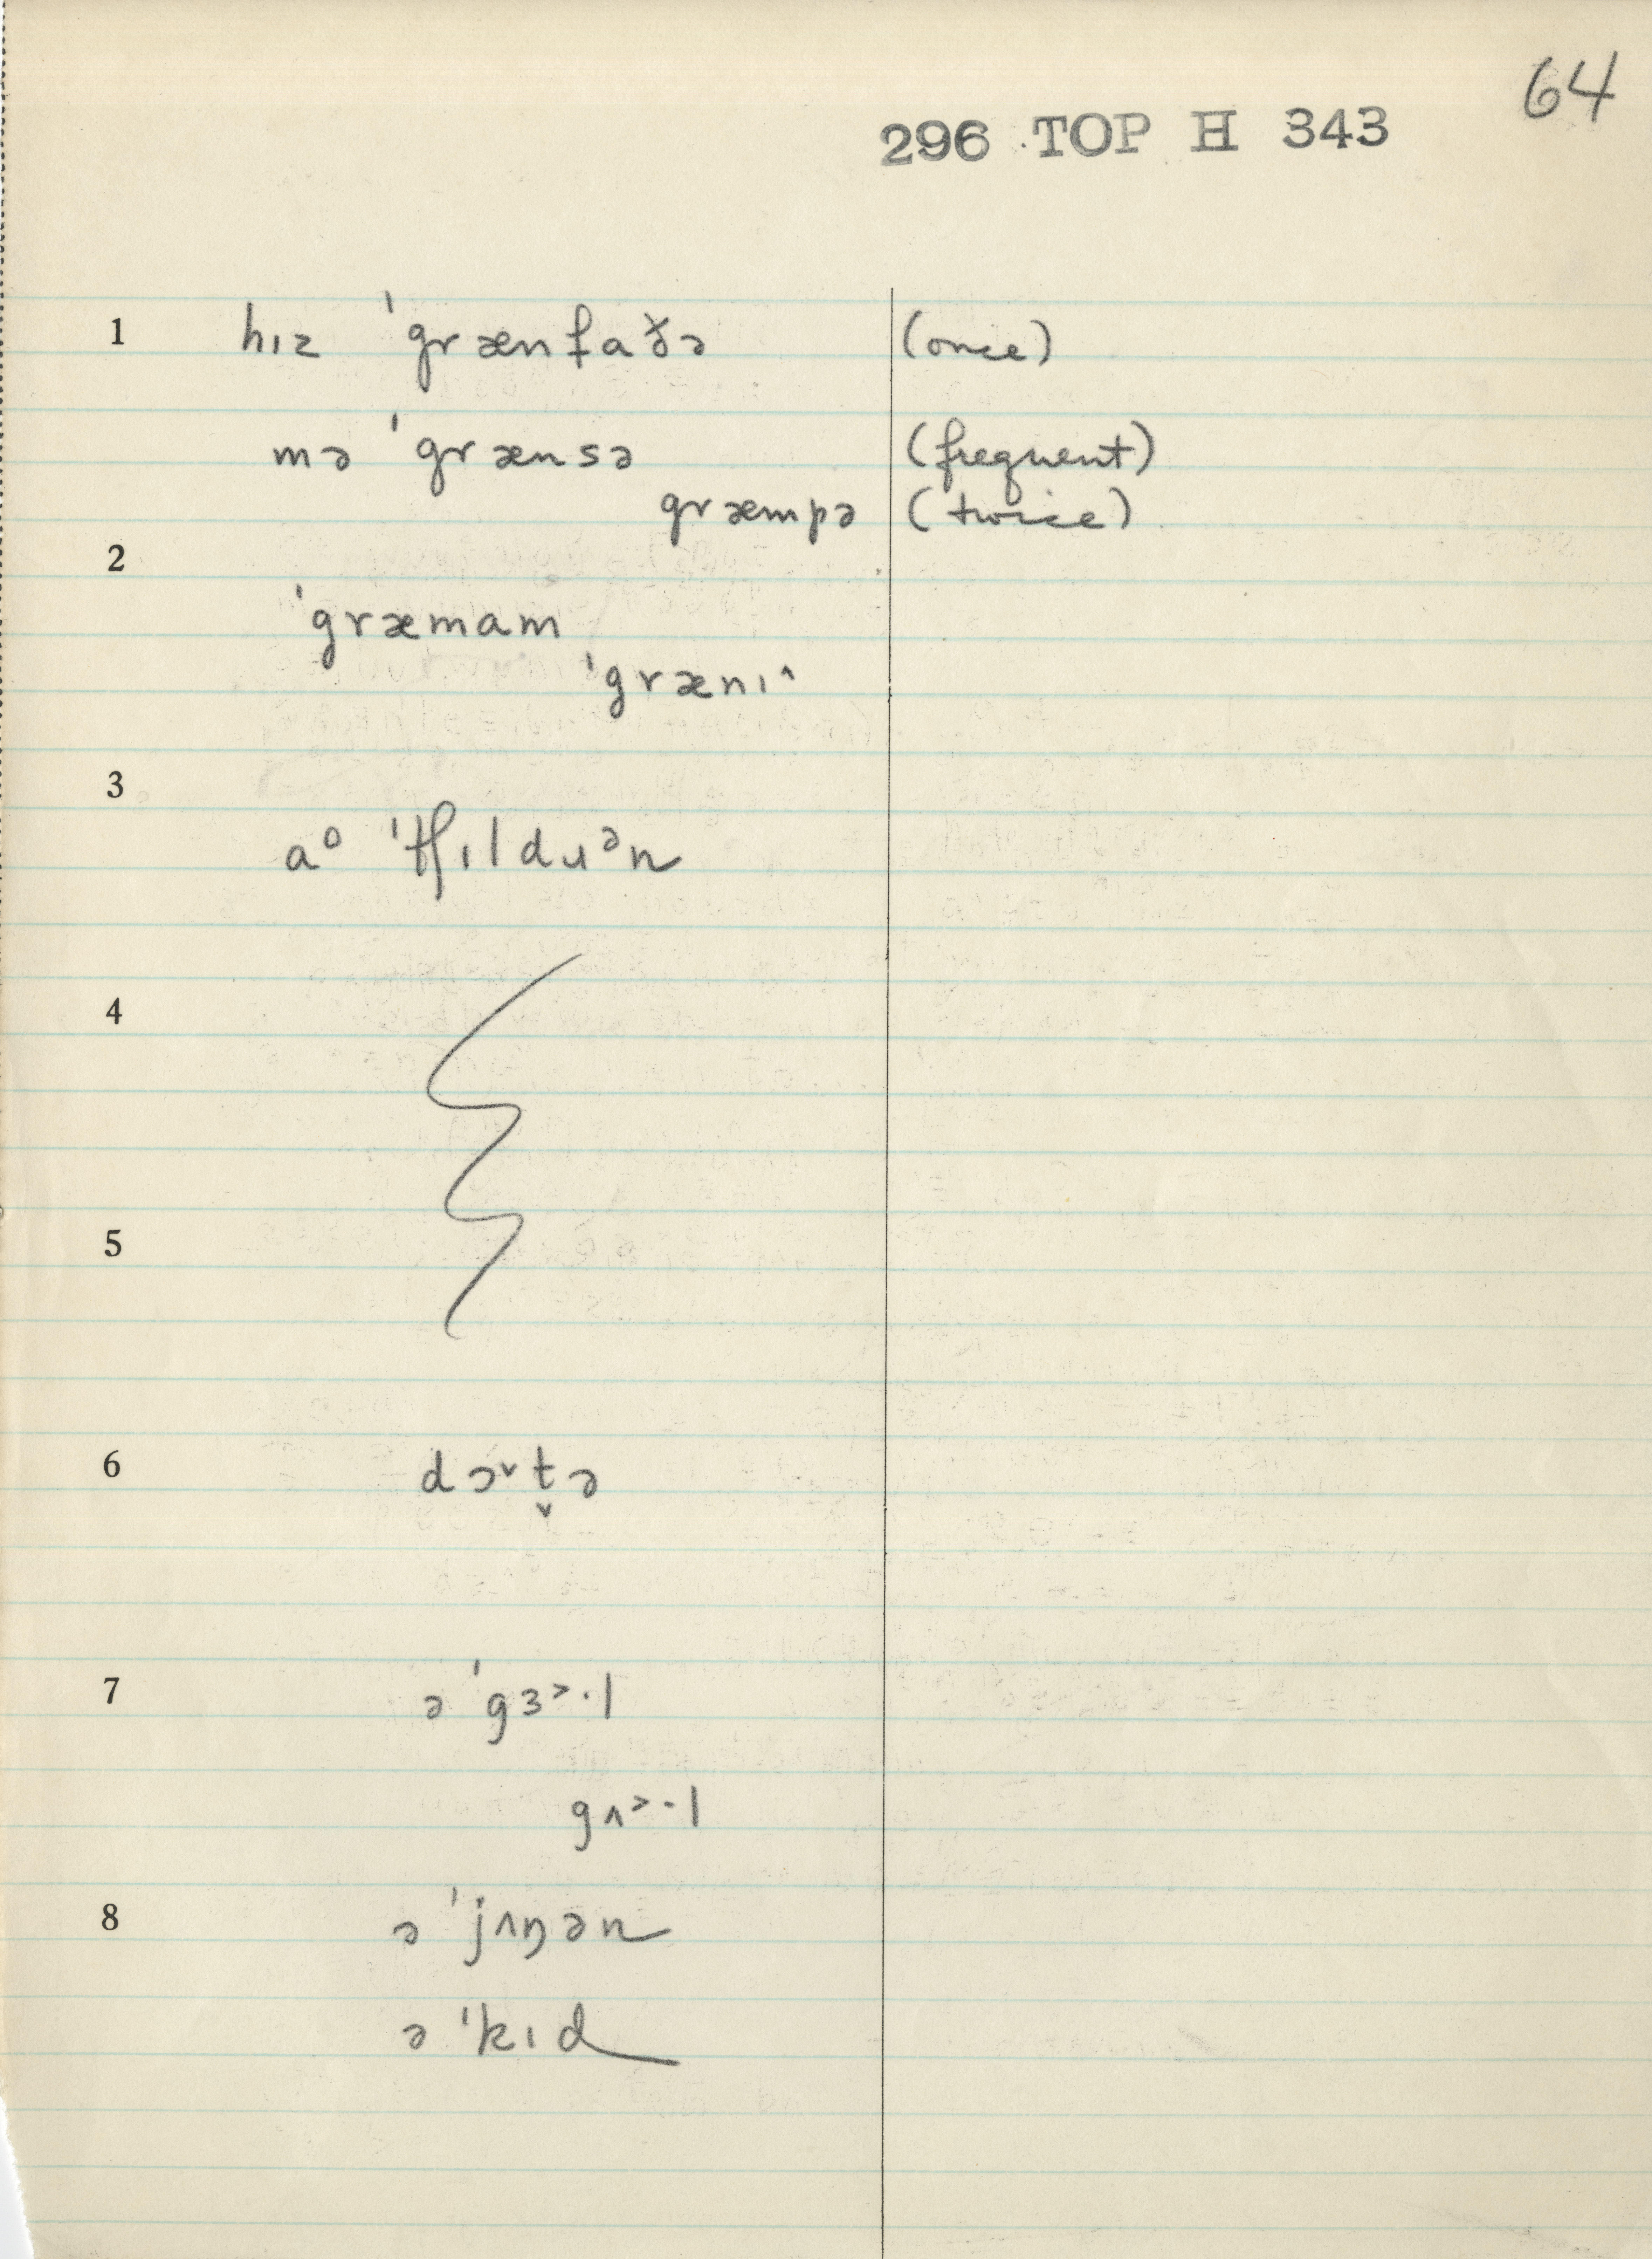 64
296 TOP H 343
1 hɪz ˈgrænfaðə (once)
mə ˈgrænsə (frequent)
græmpə (twice)
2
ˈgræmam
ˈgrænɪ^
3
aᵒ ˈtʃɪldɹᵊn
4
5
6 dɔˇt̬ə
7 ə ˈgɜ˃·l
gʌ˃·l
8 ə ˈjʌŋən
ə ˈkɪd